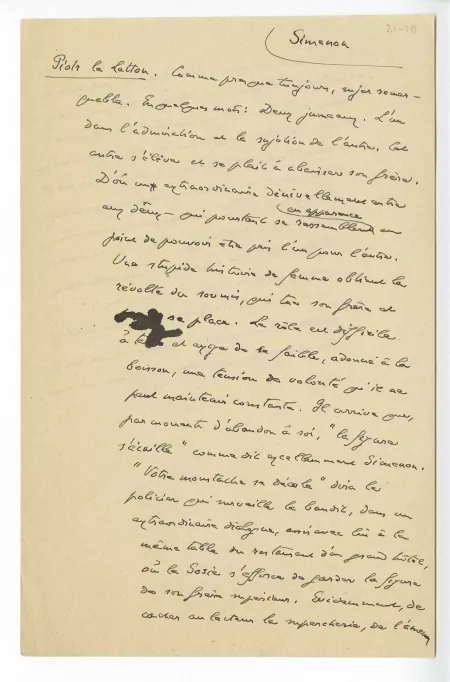 21-10
Simenon
Pietr le Letton. Comme presque toujours, sujet remar-
quable. En quelques mots : Deux jumeaux. L'un
dans l'admiration et la sujétion de l'autre. Cet
autre s'élève et se plaît à abaisser son frère.
D'où une extraordinaire dénivellement entre
en apparence
aux deux — qui pourtant se ressemblent au
point de pouvoir être pris l'un pour l'autre.
Une stupide histoire de femme obtient la
révolte du soumis, qui tue son frère et
sa place. Le rôle est difficile
à et exige de ce faible, adonné à la
boisson, une tension de volonté qu'il ne
peut maintenir constante. Il arrive que,
par moments d'abandon à soi, "la figure
s'écaille" comme dit excellemment Simenon.
"Votre moustache se décolle" dira le
policier qui surveille le bandit, dans un
extraordinaire dialogue, assis avec lui à la
même table du restaurant d'un grand hôtel,
où le Sosie s'efforce de garder la figure
de son frère supérieur. Evidemment, de
cacher au lecteur la supercherie, de l'amener